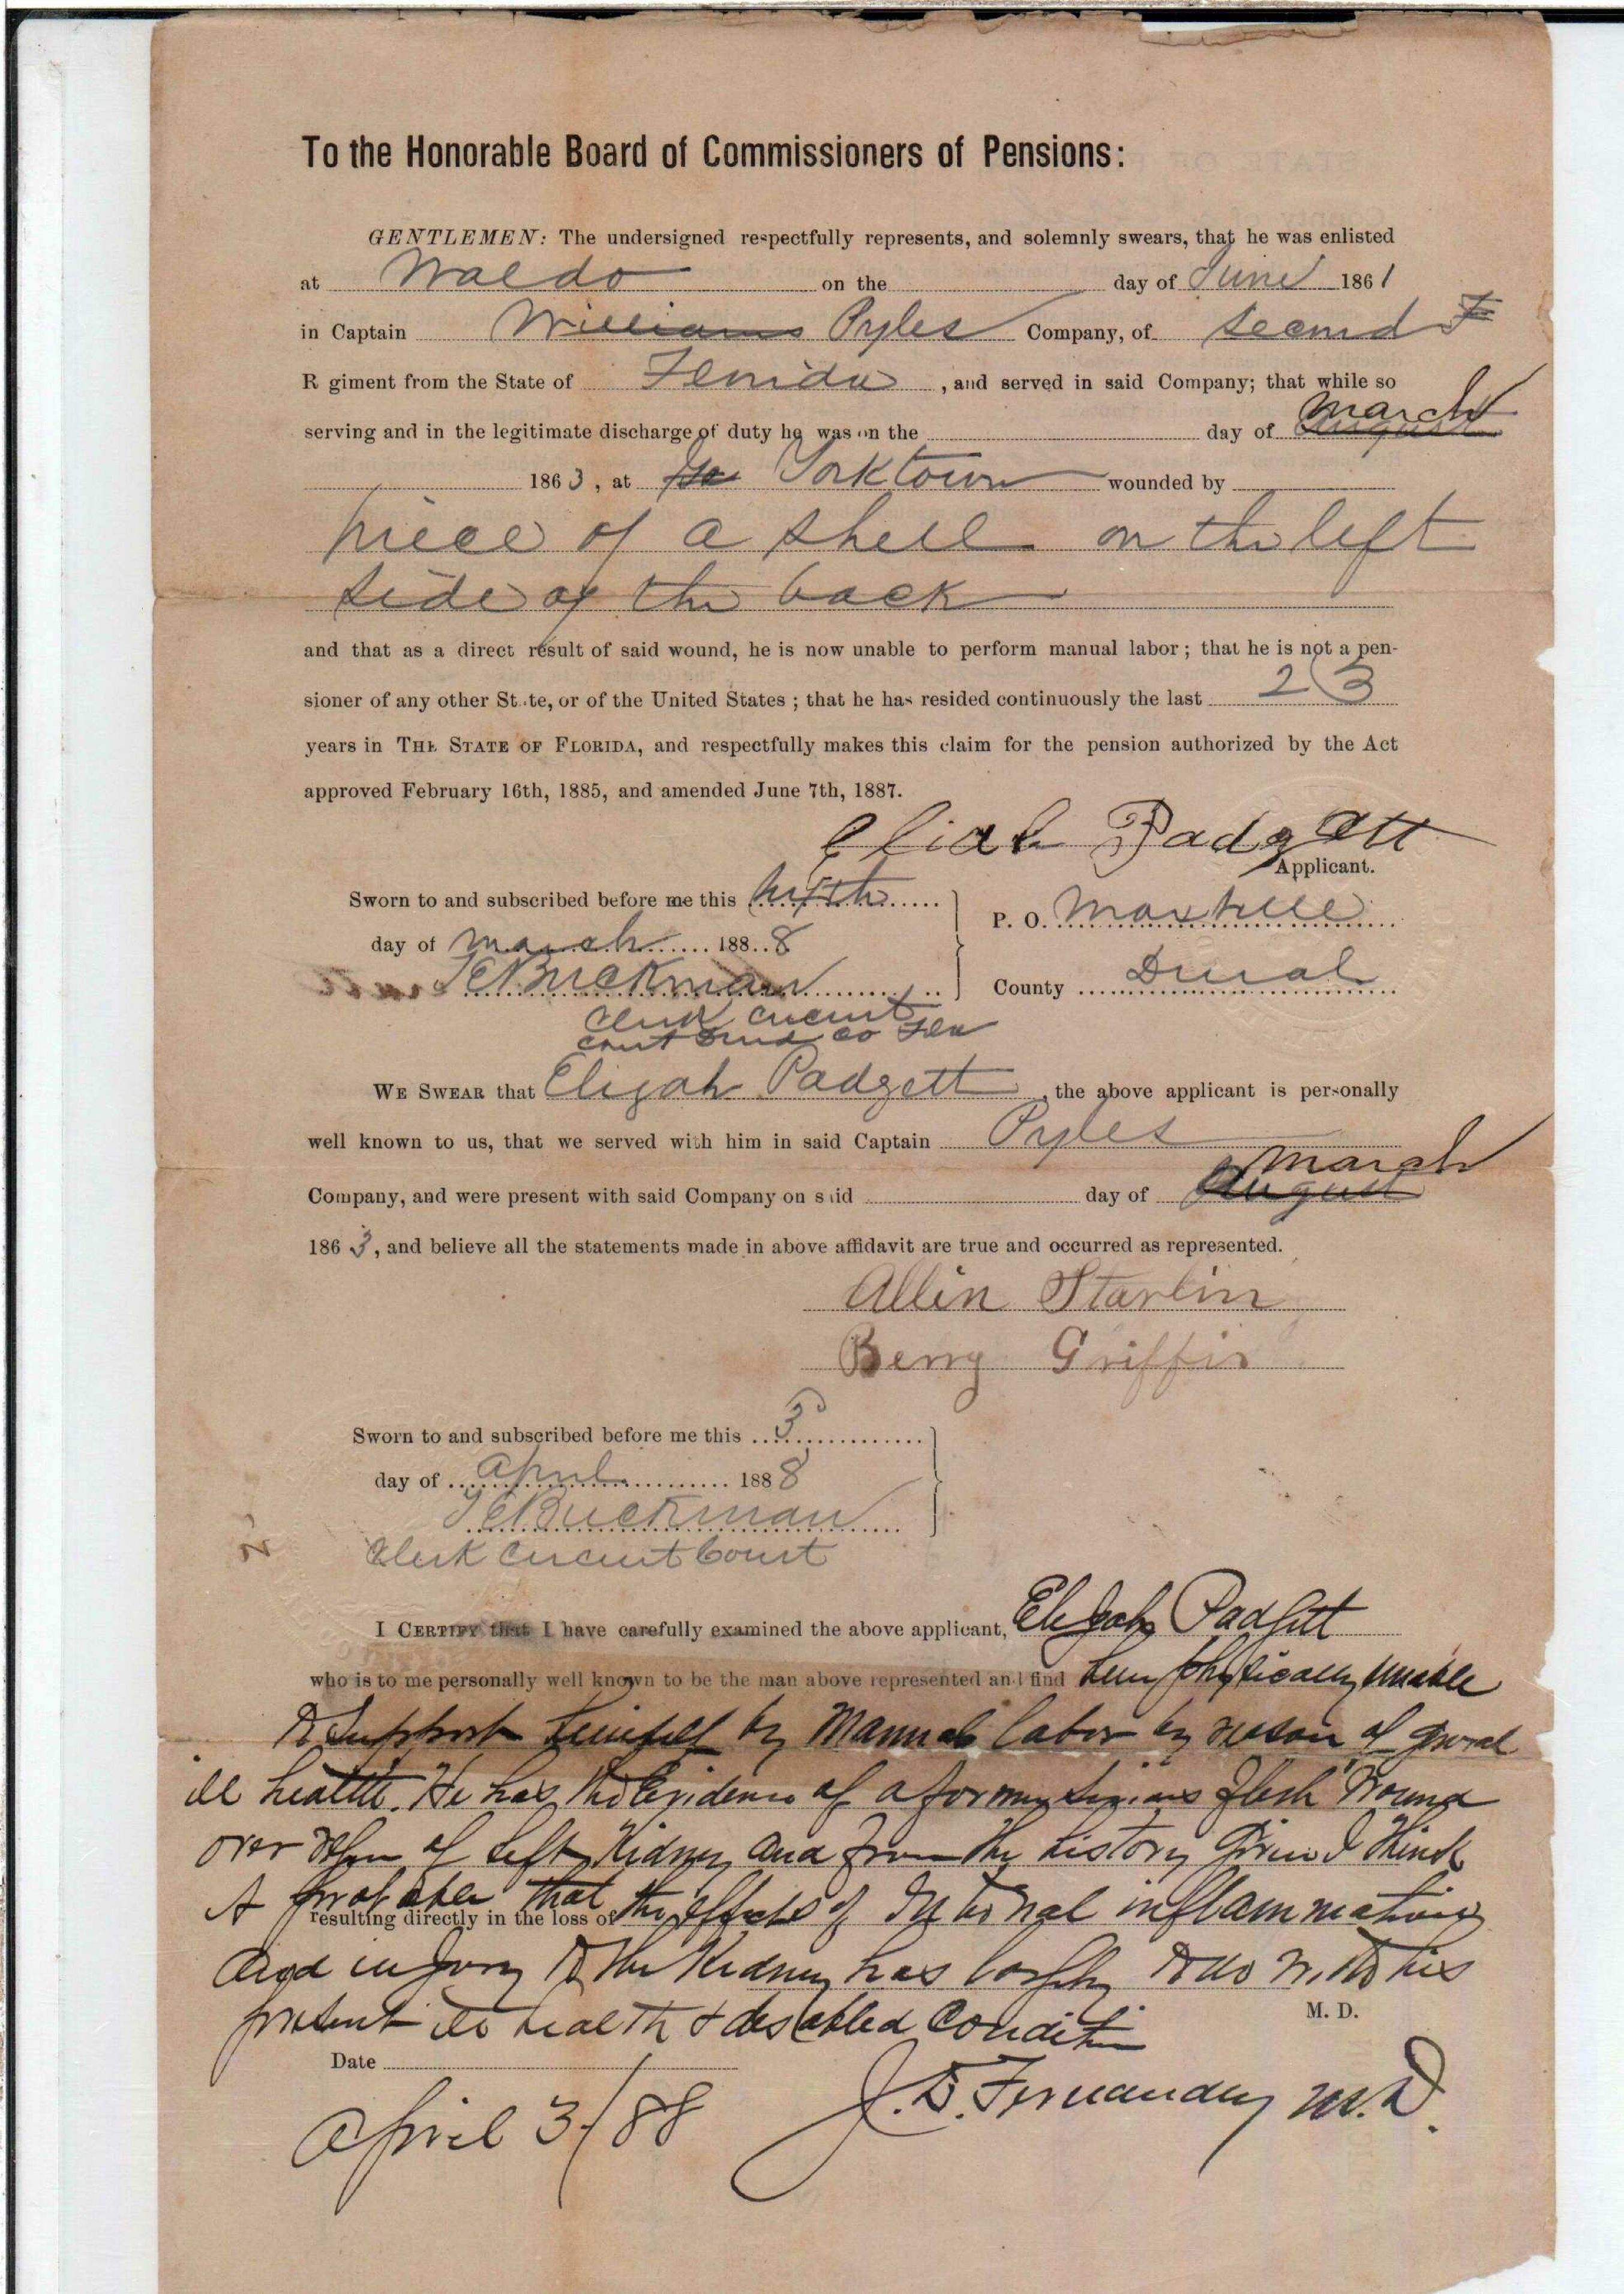 To the Honorable Board of Commissioners of Pensions:
GENTLEMEN: The undersigned respectfully represents, and solemnly swears, that he was enlisted
at Waldo on the day of June 1861
in Captain Williams Pyles Company, of second
R giment from the State of Florida, and served in said Company; that while so
march
serving and in the legitimate discharge of duty he was on the day of August
1863, at Yorktown wounded by
piece of a shell on the left
side of the back
and that as a direct result of said wound, he is now unable to perform manual labor; that he is not a pen-
sioner of any other St te, or of the United States; that he has resided continuously the last 23
years in THE STATE OF FLORIDA, and respectfully makes this claim for the pension authorized by the Act
approved February 16th, 1885, and amended June 7th, 1887.
Eliah Padgett
Applicant.
Sworn to and subscribed before me this
day of march 1888
P. O. Maxville
T E Buckman
County Duval
Clerk Circuit
Court Duval co Fla
WE SWEAR that Elijah Padgett, the above applicant is personally
well known to us, that we served with him in said Captain Pyles
march
Company, and were present with said Company on s id day of August
1863, and believe all the statements made in above affidavit are true and occurred as represented.
Allen Starlin
Berry Griffis
Sworn to and subscribed before me this 3
day of April 1888
T E Buckman
Clerk Circuit Court
I CERTIFY that I have carefully examined the above applicant, Elijah Padgett
who is to me personally well known to be the man above represented and find him physically unable
to support himself by manual labor by reason of general
ill health. He has the Evidence of a former serious flesh wound
over region of left Kidney and from the history given I think
it probable that the effects of internal inflammation
resulting directly in the loss of
and injury to the Kidney has to do with his
present ill health & disabled condition
M. D.
Date
April 3/88
J. D. Fernandez M.D.